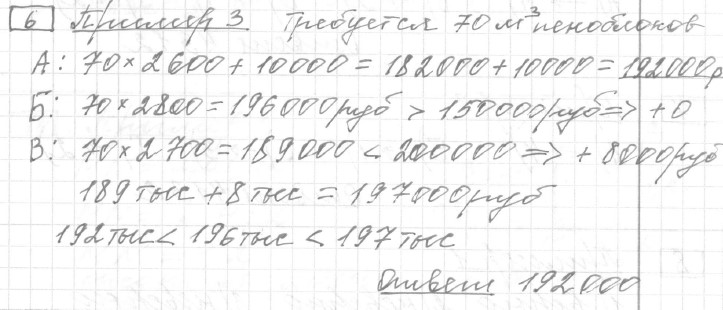 6 Пример 3 Требуется 70 м³ пеноблоков
А: 70 × 2600 + 10000 = 182000 + 10000 = 192000 р
Б: 70 × 2800 = 196000 руб > 150000 руб => + 0
В: 70 × 2700 = 189000 < 200000 => + 8000 руб
189 тыс + 8 тыс = 197000 руб
192 тыс < 196 тыс < 197 тыс
Ответ 192000